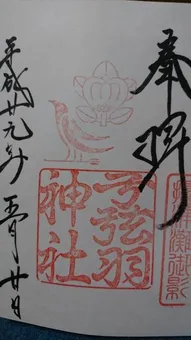 奉拝
御影
弓弦羽
神社
平成廿九年五月廿日